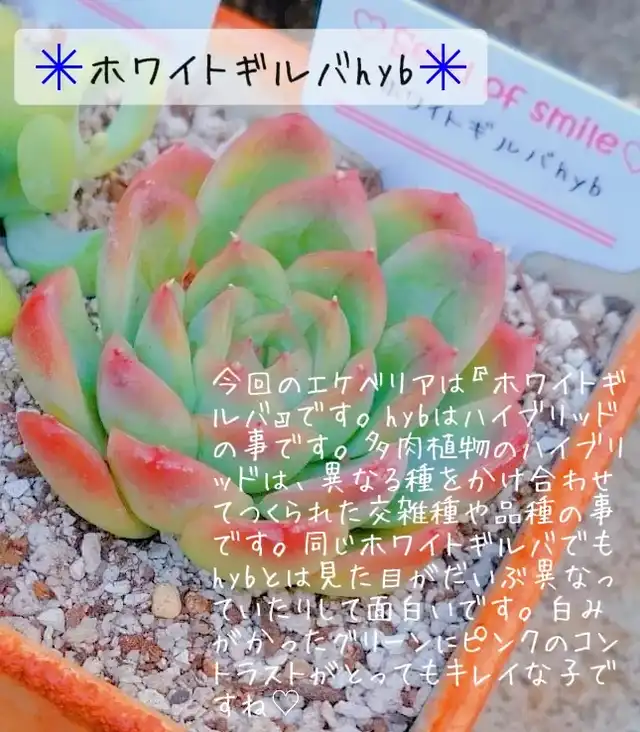 ✳ホワイトギルバhyb✳
♡Seed of smile♡
ホワイトギルバhyb
今回のエケベリアは『ホワイトギ
ルバ』です。hybはハイブリッド
の事です。多肉植物のハイブリ
ッドは、異なる種をかけ合わせ
てつくられた交雑種や品種の事
です。同じホワイトギルバでも
hybとは見た目がだいぶ異なっ
ていたりして面白いです。白み
がかったグリーンにピンクのコン
トラストがとってもキレイな子で
すね♡